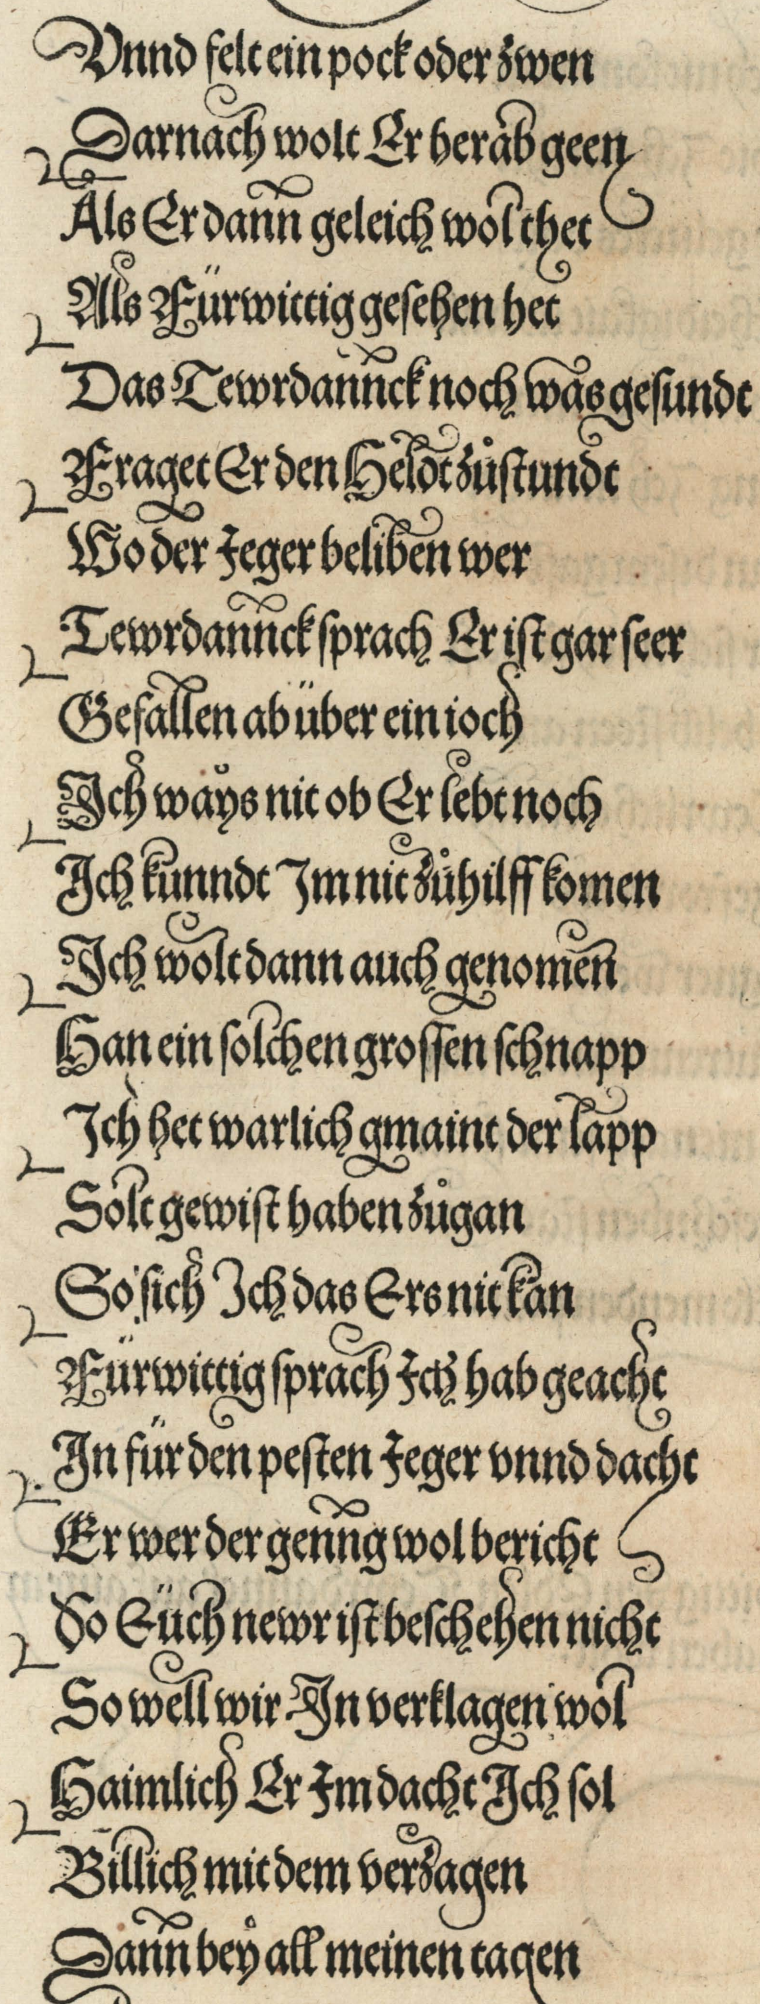 Vnnd felt ein pock oder zwen
Darnach wolt Er herab geen
Als Er dann geleich wol thet
Als Fürwittig gesehen het
Das Tewrdannck noch was gesundt
Fraget Er den Heldt zůstundt
Wo der Jeger beliben wer
Tewrdannck sprach Er ist gar seer
Gefallen ab über ein ioch
Ich ways nit ob Er lebt noch
Ich kunndt Im nit zůhilff komen
Ich wolt dann auch genomen
Han ein solchen grossen schnapp
Ich het warlich gmaint der lapp
Solt gewist haben zůgan
So sich Ich das Ers nit kan
Fürwittig sprach Ich hab geacht
In für den pesten Jeger vnnd dacht
Er wer der genng wol bericht
So Eüch newr ist beschehen nicht
So well wir In verklagen wol
Haimlich Er Im dacht Ich sol
Billich mit dem verzagen
Dann bey all meinen tagen